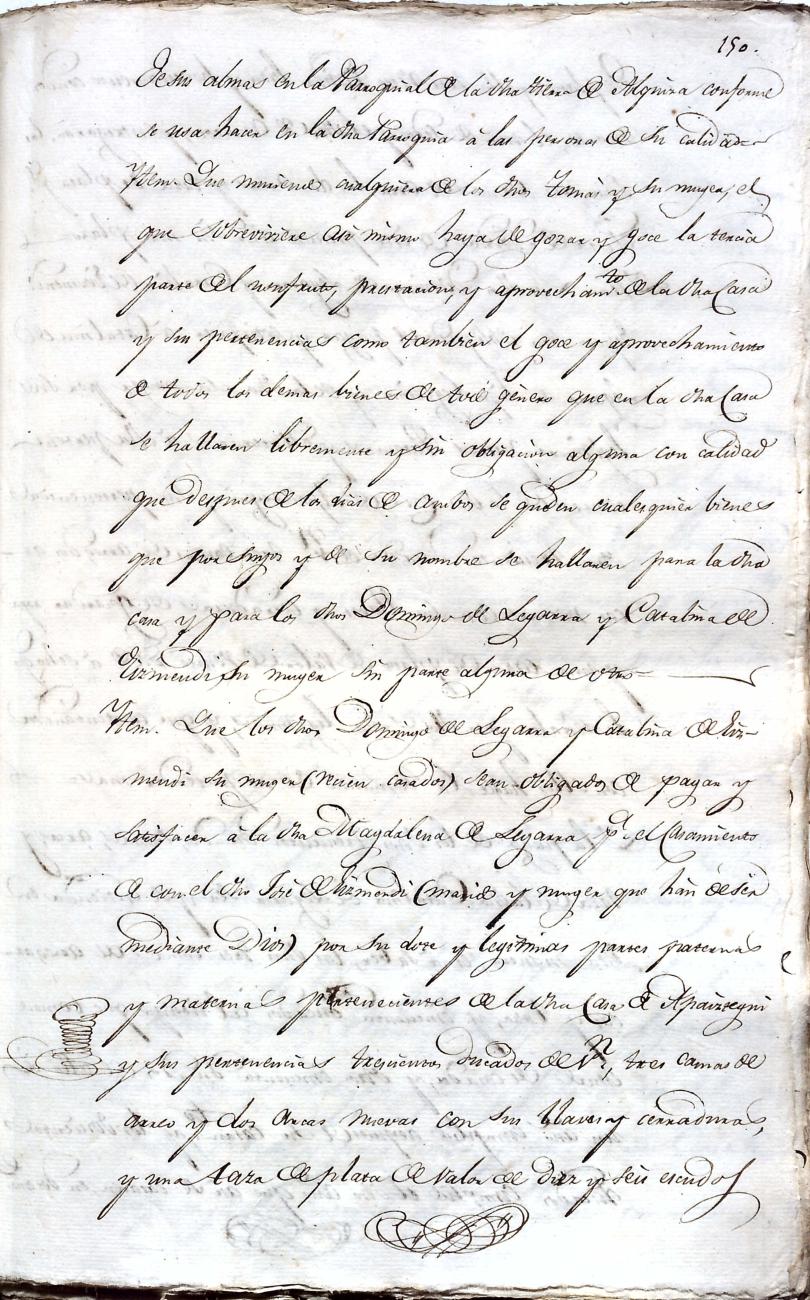 150.
de sus almas en la Parroquial de la dha tierra de Alquiza conforme
se usa hacer en la dha Parroquia à las personas de su calidad
Ytem. Que muriendo cualquiera de los dhos Tomas y su muger, el
que sobreviviere asi mismo haya de gozar y goce la tercia
parte del usufruto, prestacion, y aprovecham.to de la dha Casa
y sus pertenencias como tambien el goce y aprovechamiento
de todos los demas bienes de todo género que en la dha Casa
se hallaren libremente y sin obligacion alguna con calidad
que despues de los dias de ambos se queden cualesquier bienes
que por suyos y de su nombre se hallaren para la dha
casa y para los dhos Domingo de Legarra y Catalina de
Eizmendi su muger sin parte alguna de otro
Ytem. Que los dhos Domingo de Legarra y Catalina de Eiz-
mendi su muger (recien casados) sean obligados de pagar y
satisfacer à la dha Magdalena de Legarra p.a el Casamiento
de con el dho José de Eizmendi (marido y muger que han de ser
mediante Dios) por su dote y legitimas partes paternas
y maternas pertenecientes de la dha Casa de Apaiztegui
y sus pertenencias trescientos ducados de V.n, tres camas de
arreo y dos arcas nuevas con sus llaves y cerraduras,
y una taza de plata de valor de diez y seis escudos